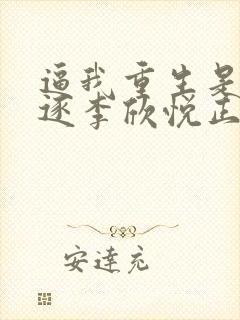 逼我重生是
逐李欣悦正
安達充